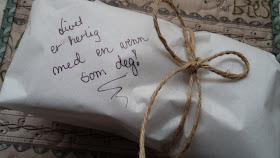 Livet
er herlig
med en venn
som deg!